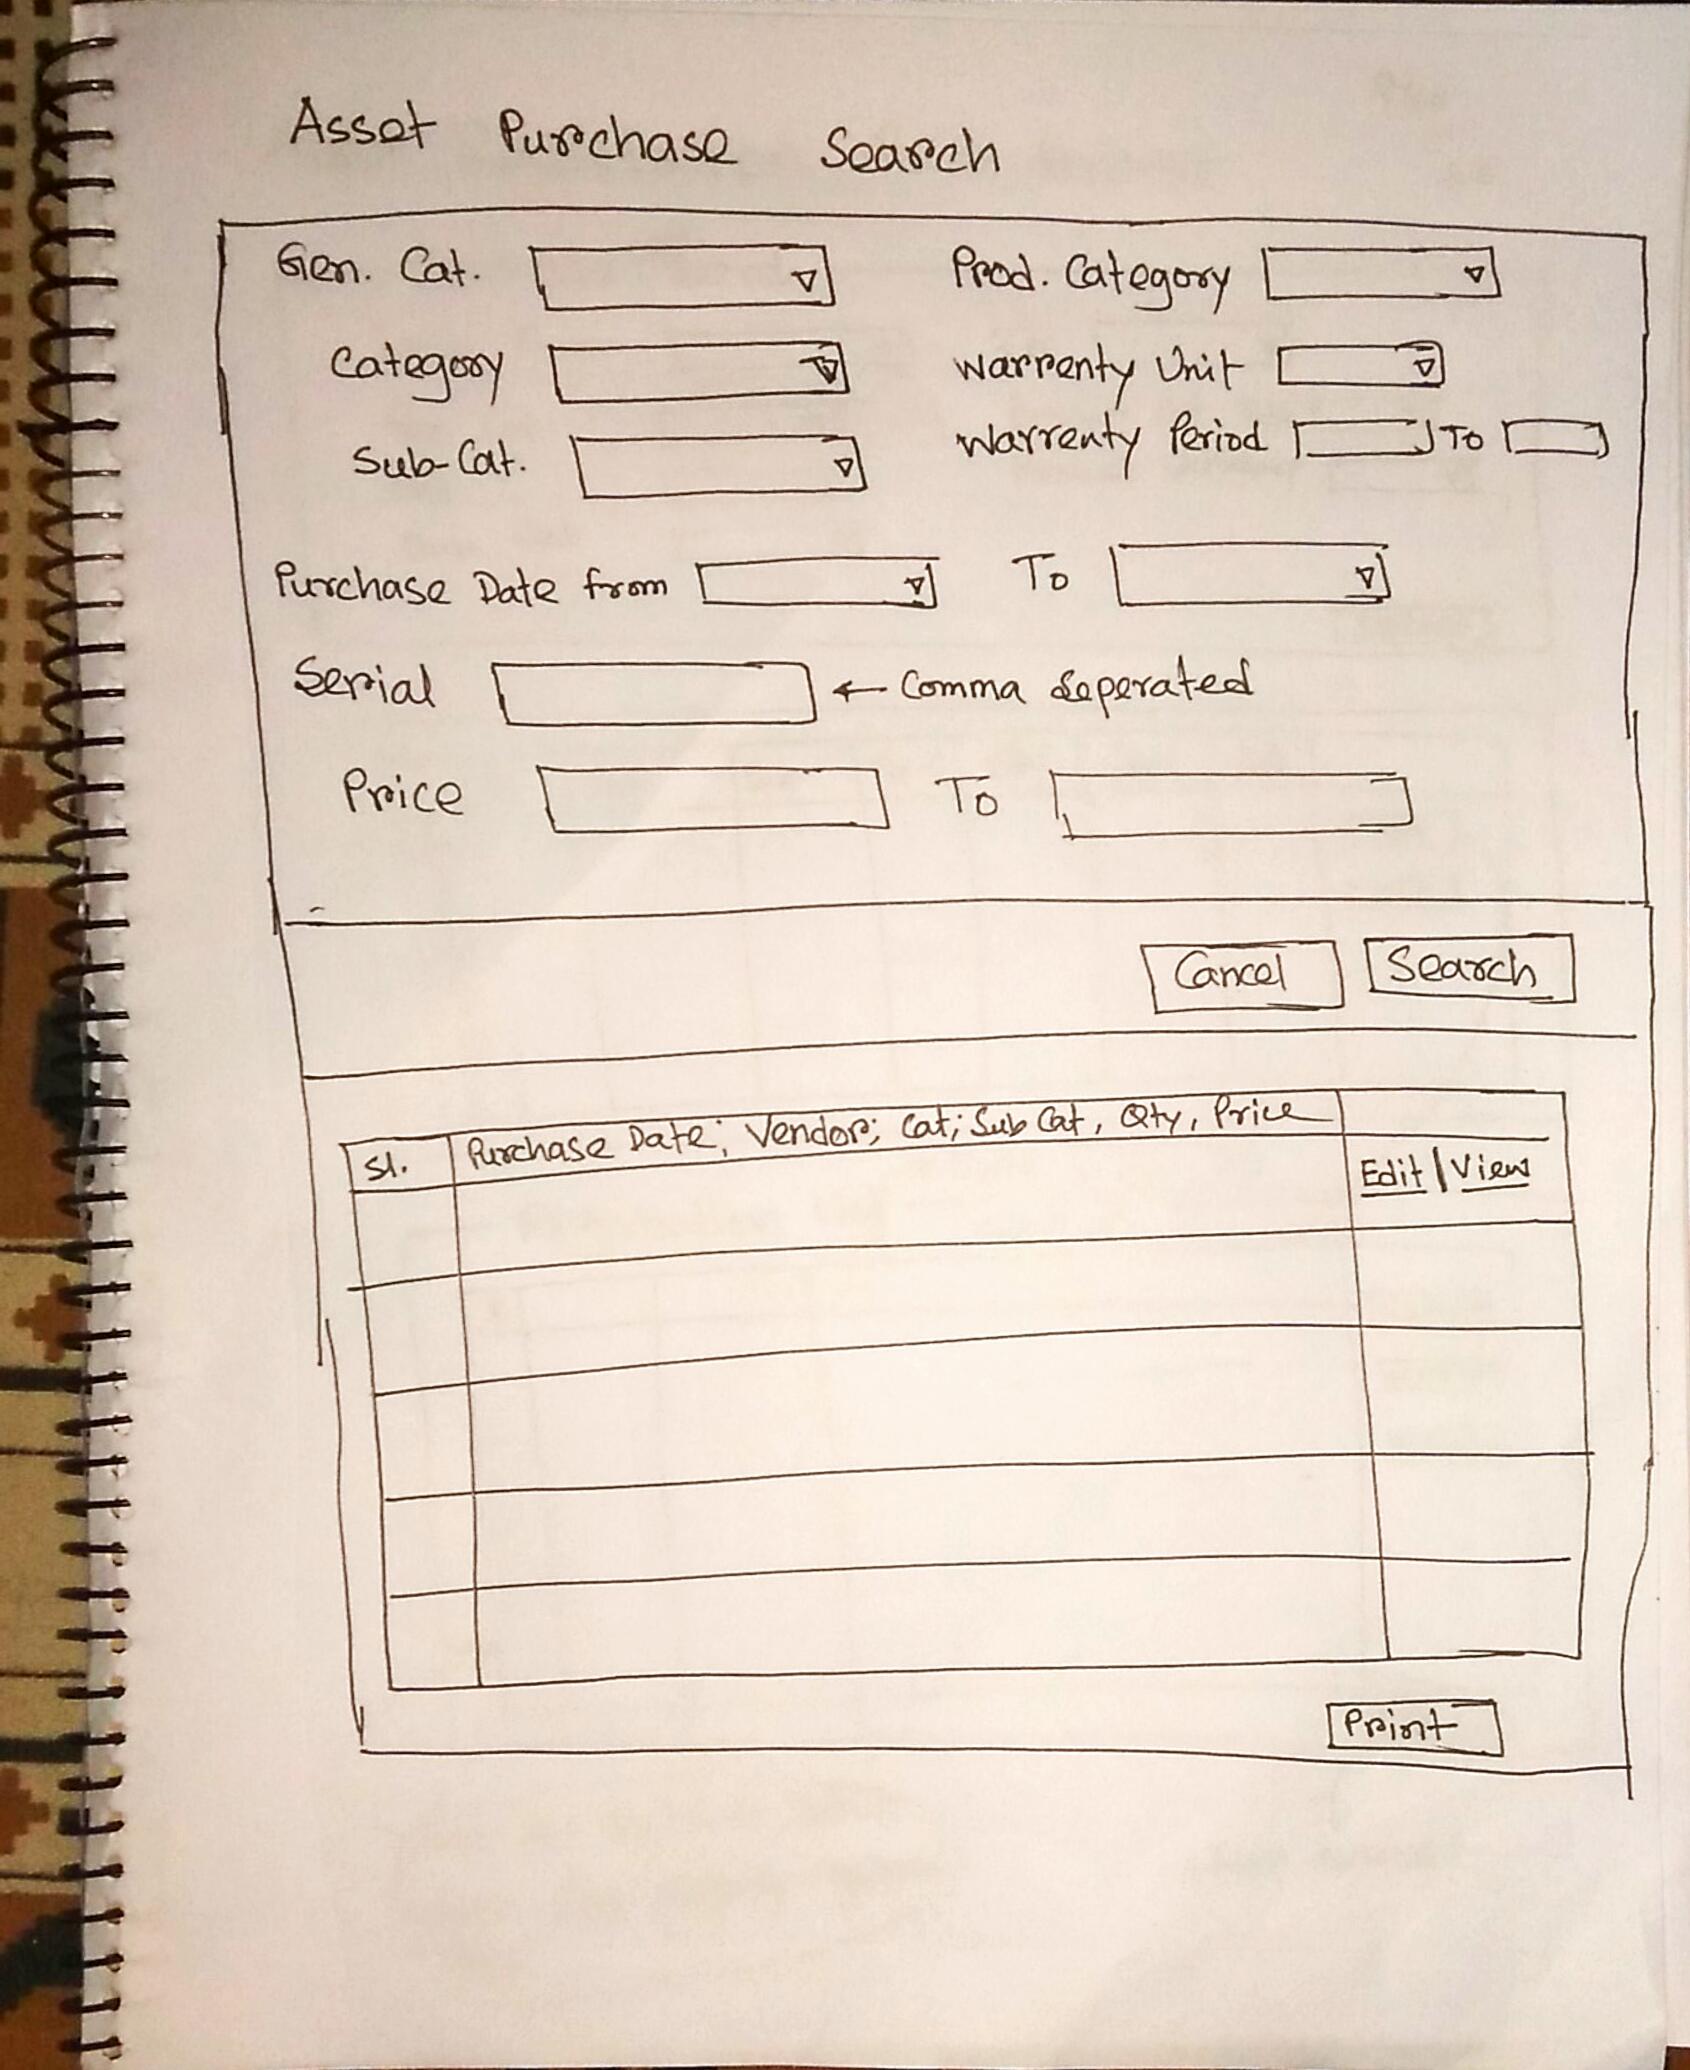 Asset Purchase Search
Gen. Cat. Prod. Category
Category Warrenty Unit
Sub-Cat. Warrenty Period To
Purchase Date from To
Serial ← Comma Seperated
Price To
Cancel Search
Sl. Purchase Date; Vendor; Cat; Sub Cat, Qty, Price
Edit | View
Print